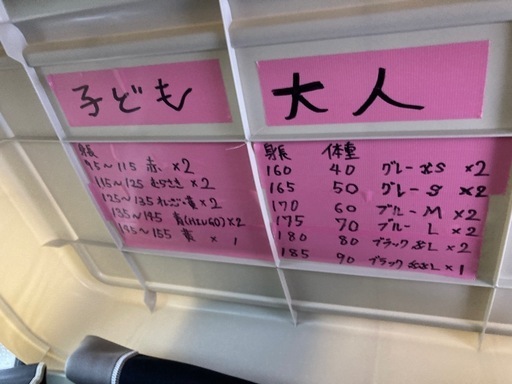 子ども
身長
95~115 赤 ×2
115~125 むらさき ×2
125~135
135~145 青(HUGO)×2
145~155 黄 × 1
大人
身長 体重
160 40 グレー XS ×2
165 50 グレー S ×2
170 60 ブルー M ×2
175 70 ブルー L ×2
180 80 ブラック XL ×2
185 90 ブラック XXL ×1